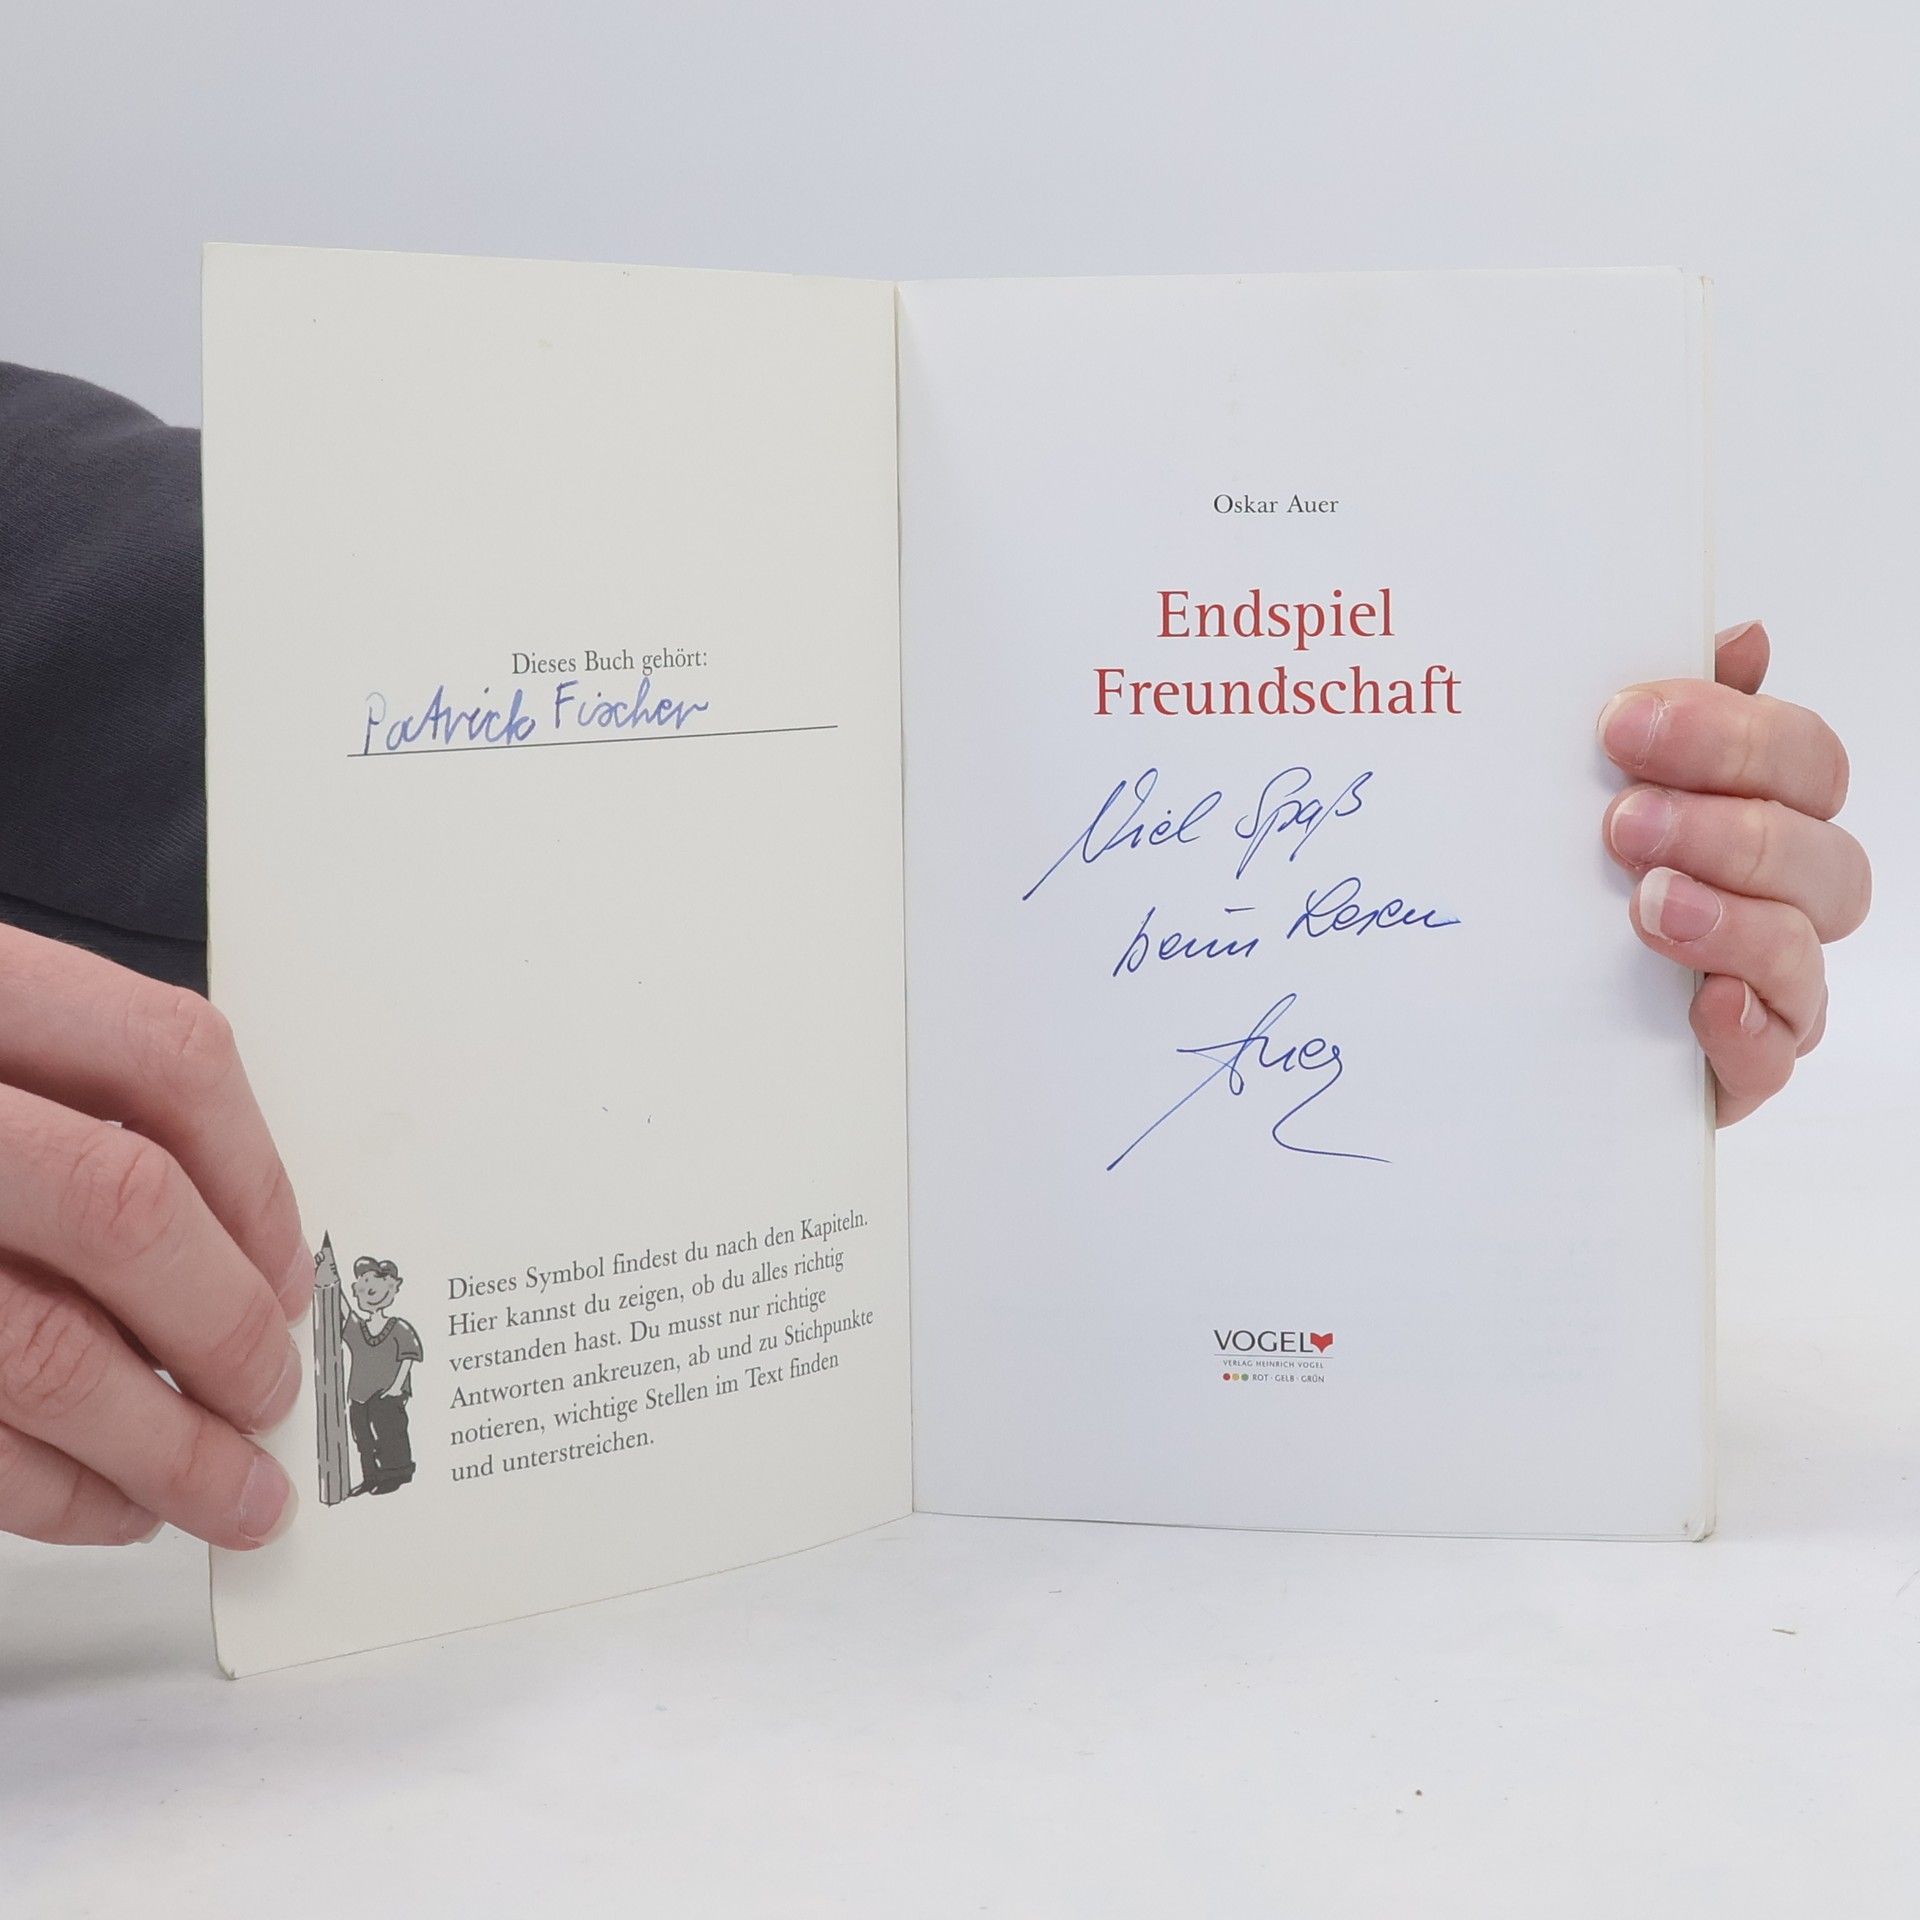 Dieses Buch gehört:
Patrick Fischer
Dieses Symbol findest du nach den Kapiteln.
Hier kannst du zeigen, ob du alles richtig
verstanden hast. Du musst nur richtige
Antworten ankreuzen, ab und zu Stichpunkte
notieren, wichtige Stellen im Text finden
und unterstreichen.
Oskar Auer
Endspiel
Freundschaft
Viel Spaß
beim Lesen
Auer
VOGEL
VERLAG HEINRICH VOGEL
ROT · GELB · GRÜN